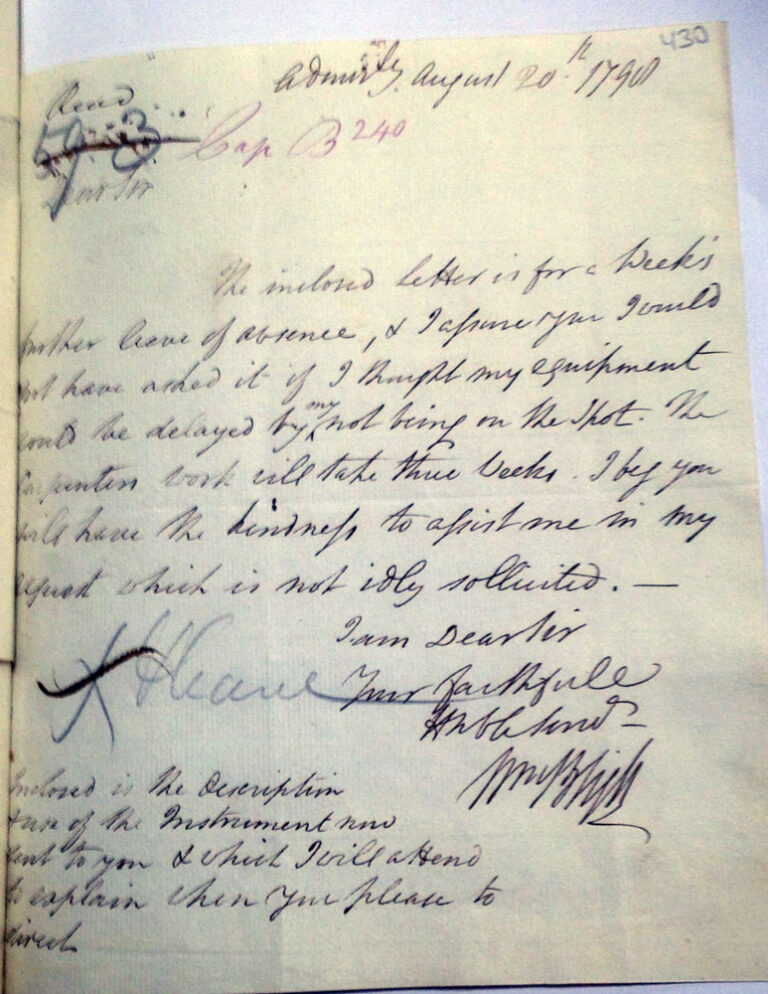 430
Admir.ty August 20.th 1798
Read
59.3
Cap B 240
Dear Sir
The inclosed Letter is for a Week's
further leave of absence, & I assure you I would
not have asked it if I thought my equipment
would be delayed by my not being on the Spot. The
Carpenters work will take three Weeks. I beg you
will have the kindness to assist me in my
request which is not idly sollicited. —
I am Dear Sir
Your faithfull
Hble Serv.t
Wm Bligh
Inclosed is the Description
& use of the Instrument now
sent to you & which I will attend
to explain when you please to
direct